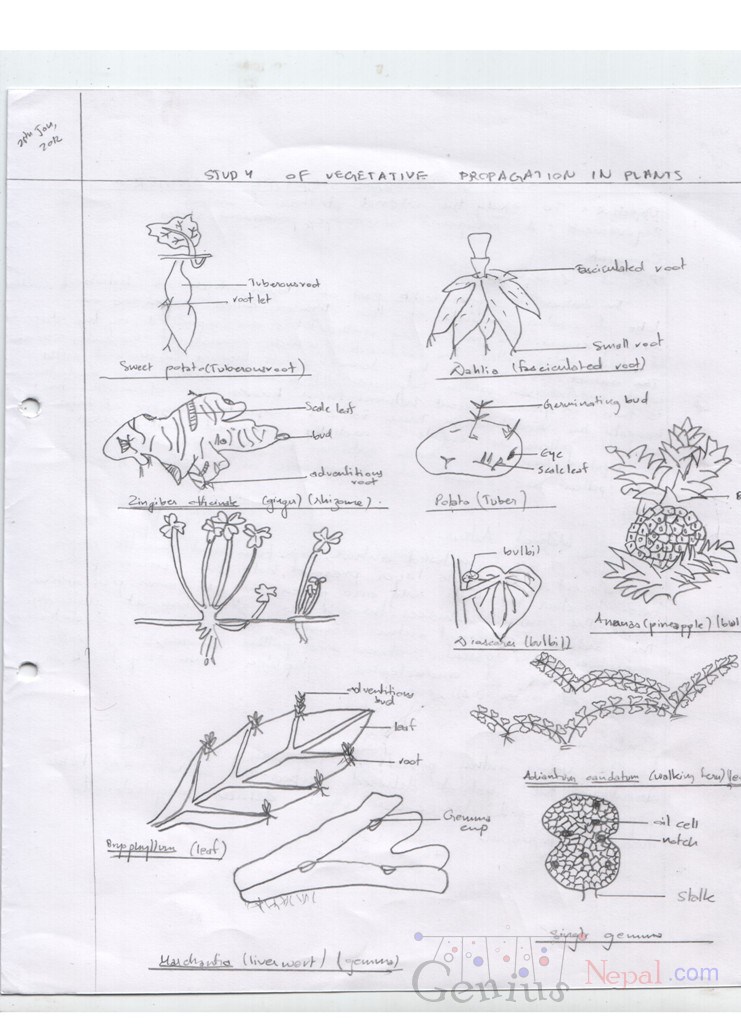 Jan,
2012
STUDY OF VEGETATIVE PROPAGATION IN PLANTS
Tuberous root
root let
Sweet potato (Tuberous root)
fasciculated root
Small root
Dahlia (fasciculated root)
Scale leaf
bud
adventitious
root
Zingiber officinale (ginger) (rhizome).
Germinating bud
Eye
scale leaf
Potato (Tuber)
bulbil
Dioscorea (bulbil)
Ananas (pineapple)
adventitious
bud
leaf
root
Bryophyllum (leaf)
Adiantum caudatum (walking fern)
Gemma
cup
oil cell
notch
Stalk
Single gemma
Marchantia (liverwort) (gemma)
Genius Nepal.com